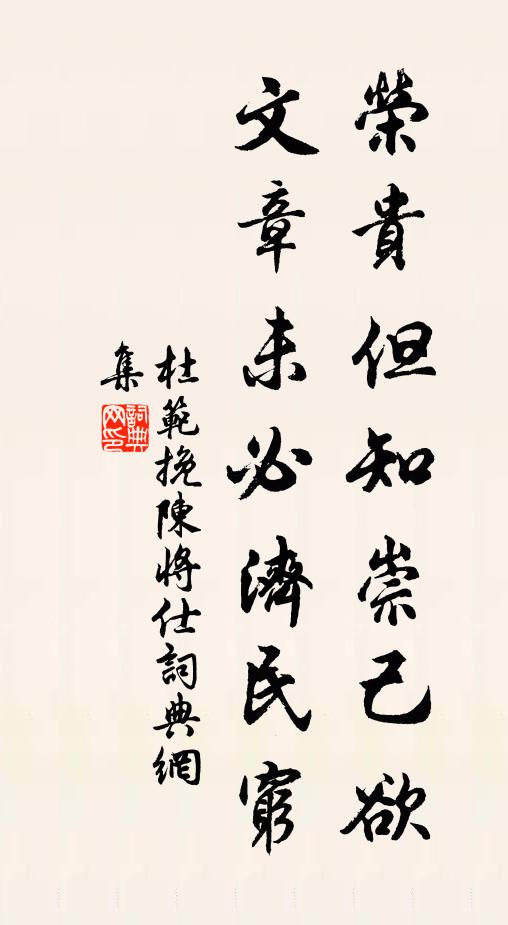 榮貴但知崇己欲
文章未必濟民窮
杜範挽陳將仕詞典網
集
詞典
网印